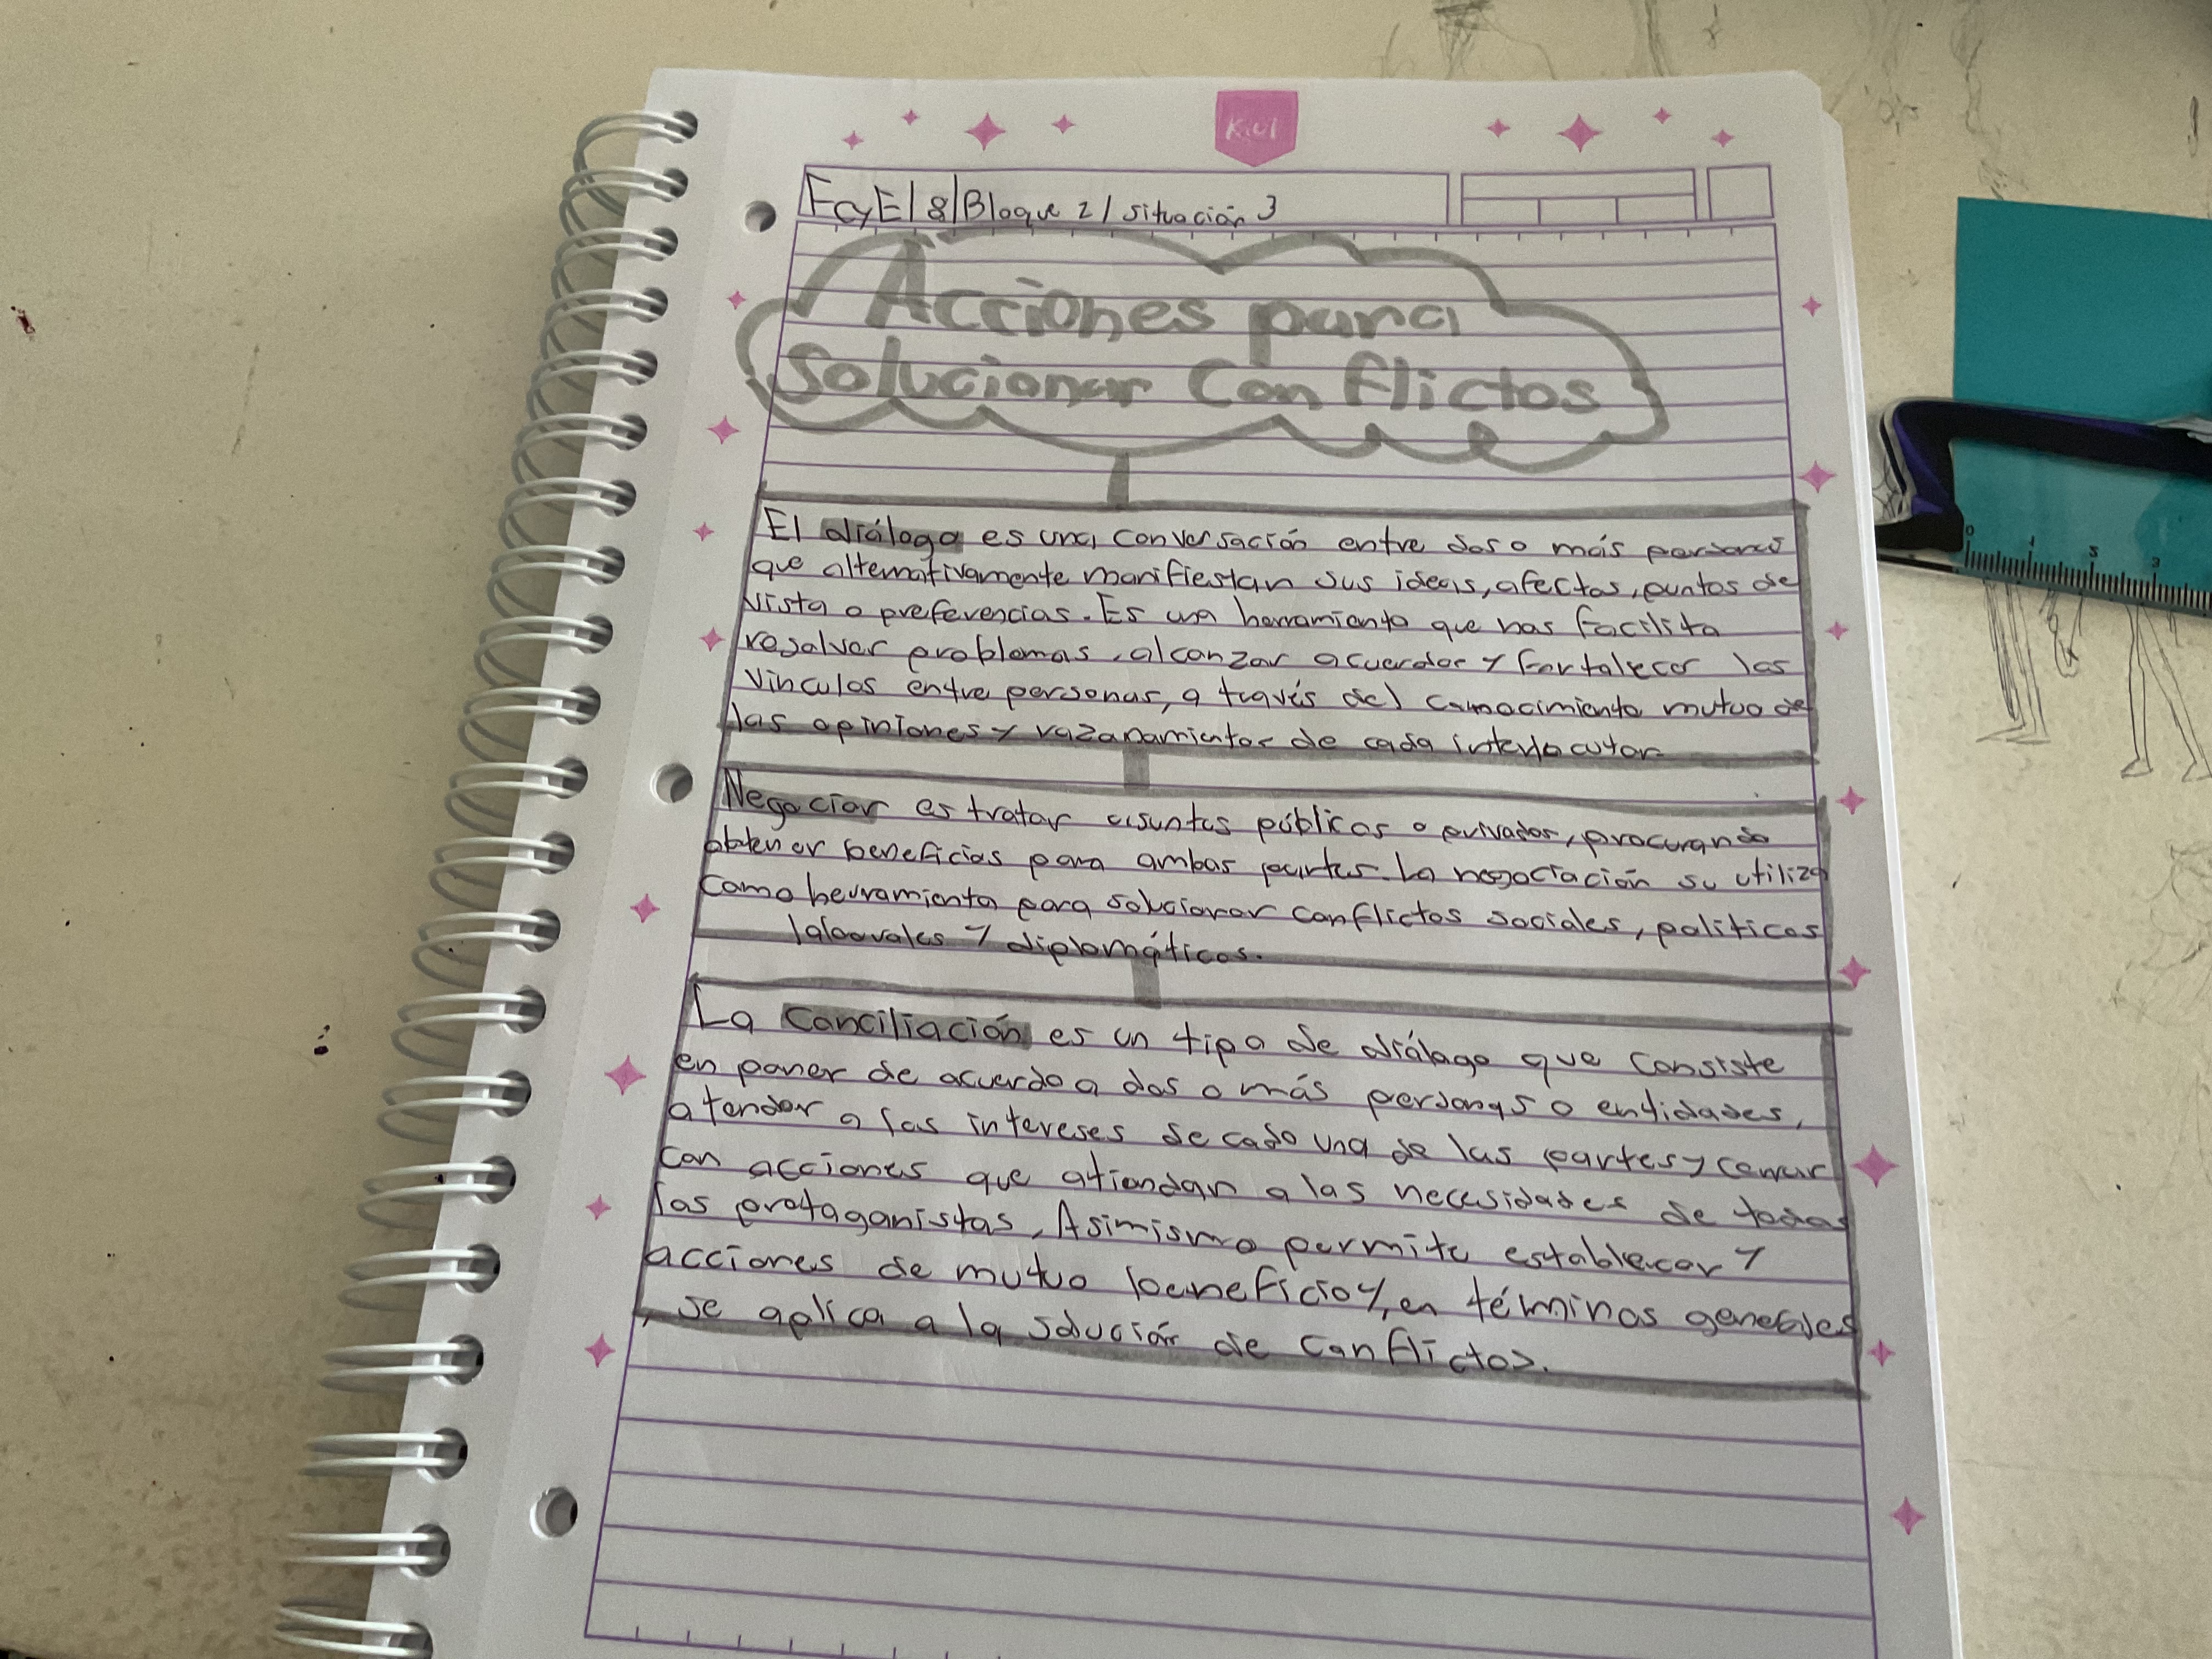 Kiut
FCyE/8/Bloque 2/situación 3
Acciones para
Solucionar Conflictos
El diálogo es una conversación entre dos o más personas
que alternativamente manifiestan sus ideas, afectos, puntos de
vista o preferencias. Es una herramienta que nos facilita
resolver problemas, alcanzar acuerdos y fortalecer los
vinculos entre personas, a través del conocimiento mutuo de
las opiniones y razonamientos de cada interlocutor.
Negociar es tratar asuntos públicos o privados, procurando
obtener beneficios para ambas partes. La negociación se utiliza
como herramienta para solucionar conflictos sociales, politicos
laborales y diplomáticos.
La Conciliación es un tipo de diálogo que consiste
en poner de acuerdo a dos o más personas o entidades,
atender a los intereses de cada una de las partes y cerrar
con acciones que atiendan a las necesidades de todos
los protagonistas, Asimismo permite establecer y
acciones de mutuo beneficio y, en términos generales
, se aplica a la solución de Conflictos.
0 1 2 3